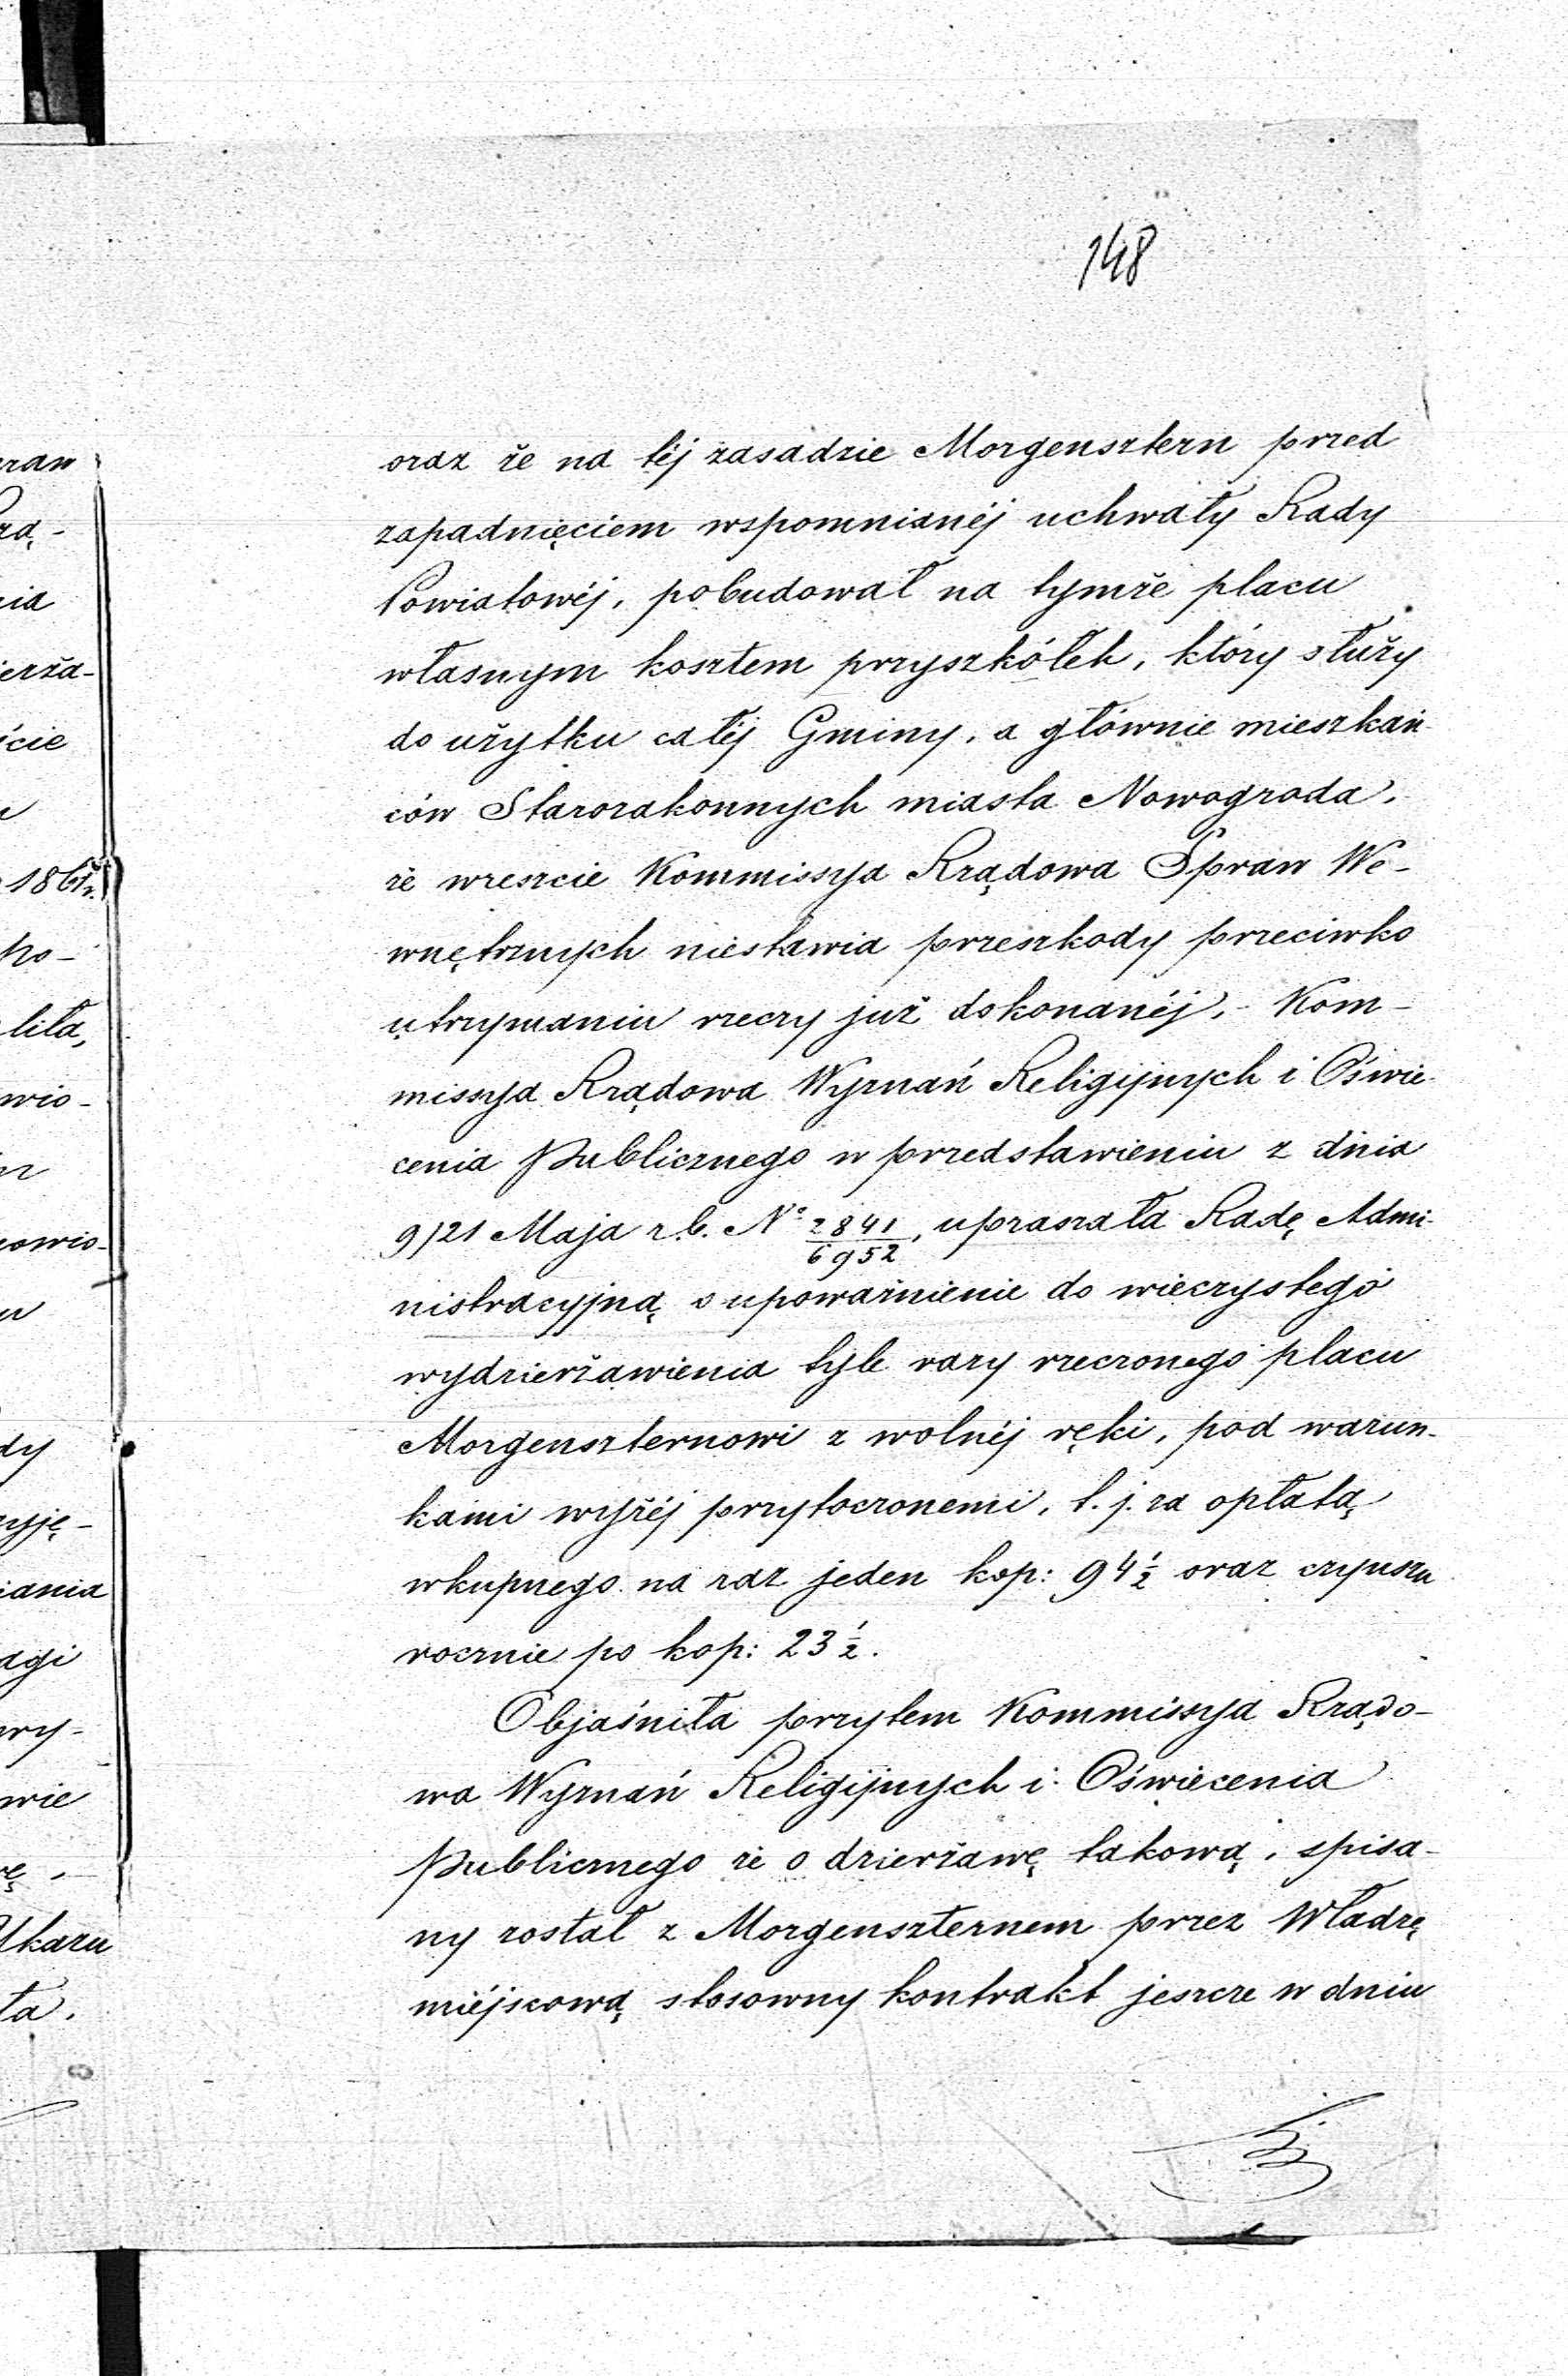 148
oraz że na téj zasadzie Morgensztern przed
zapadnięciem wspomnianéj uchwały Rady
Powiatowéj, pobudował na tymże placu
własnym kosztem przyszkółek, który służy
do użytku całéj Gminy, a głównie mieszkań-
ców Starozakonnych miasta Nowogroda,
że wreszcie Kommissya Rządowa Spraw We-
wnętrznych niestawia przeszkody przeciwko
utrzymaniu rzeczy już dokonanéj, - Kom-
missya Rządowa Wyznań Religijnych i Oświe-
cenia Publicznego w przedstawieniu z dnia
9/21 Maja r.b. N° 2841/6952, upraszała Radę Admi-
nistracyjną o upoważnienie do wieczystego
wydzierżawienia tyle razy rzeczonego placu
Morgenszternowi z wolnéj ręki, pod warun-
kami wyżéj przytoczonemi, t. j. za opłatą
wkupnego na raz jeden kop: 94 1/2 oraz czynszu
rocznie po kop: 23 1/2.
Objaśniła przytem Kommissya Rządo-
wa Wyznań Religijnych i Oświecenia
Publicznego że o dzierżawę takową, spisa-
ny został z Morgenszternem przez Władzę
miéjscową stosowny kontrakt jeszcze w dniu